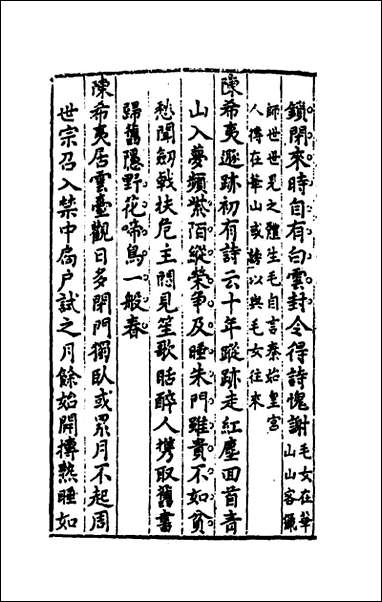 鎖閉來時自有白雲封今得詩愧謝
毛女在華
山山客獵
師世世見之體生毛自言秦始皇宮
人傳在華山或謗以與毛女往來
陳希夷遯跡初有詩云十年蹤跡走紅塵回首青
山入夢頻紫陌縱榮争及睡朱門雖貴不如貧
愁聞劒戟扶危主悶見笙歌聒醉人攜取舊書
歸舊隱野花啼鳥一般春
陳希夷居雲臺觀日多閉門獨臥或累月不起周
世宗召入禁中扃户試之月餘始開摶熟睡如